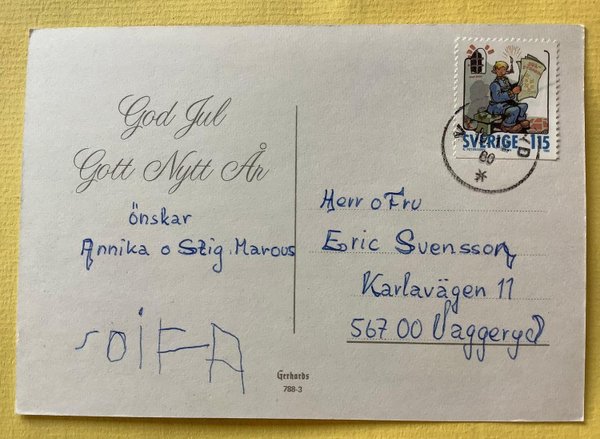 God Jul
Gott Nytt År
önskar
Annika o Stig. Marcus
SOiFA
SVERIGE 115
80
Herr o Fru
Eric Svensson
Karlavägen 11
567 00 Vaggeryd
Gerhards
788-3